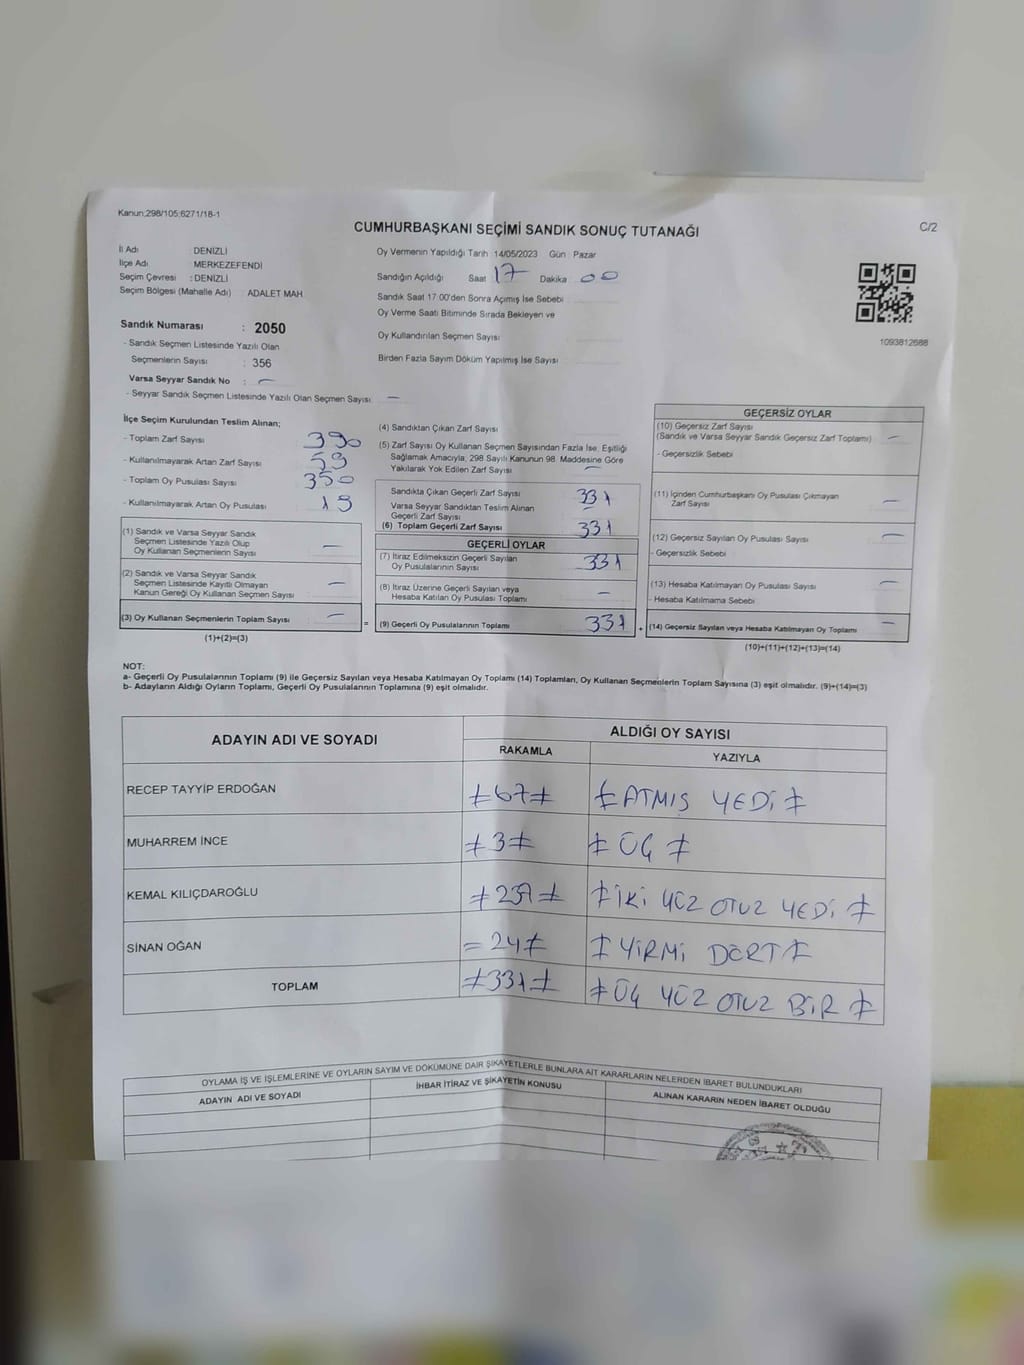 Kanun;298/105;6271/18-1
CUMHURBAŞKANI SEÇİMİ SANDIK SONUÇ TUTANAĞI
C/2
İl Adı : DENİZLİ
İlçe Adı : MERKEZEFENDİ
Seçim Çevresi : DENİZLİ
Seçim Bölgesi (Mahalle Adı) : ADALET MAH.
Oy Vermenin Yapıldığı Tarih : 14/05/2023 Gün : Pazar
Sandığın Açıldığı Saat 17 Dakika 00
Sandık Saat 17:00'den Sonra Açımış İse Sebebi
Oy Verme Saati Bitiminde Sırada Bekleyen ve
Oy Kullandırılan Seçmen Sayısı
Birden Fazla Sayım Döküm Yapılmış İse Sayısı
1093812688
Sandık Numarası : 2050
- Sandık Seçmen Listesinde Yazılı Olan
Seçmenlerin Sayısı : 356
Varsa Seyyar Sandık No : —
- Seyyar Sandık Seçmen Listesinde Yazılı Olan Seçmen Sayısı: —
İlçe Seçim Kurulundan Teslim Alınan;
- Toplam Zarf Sayısı 390
- Kullanılmayarak Artan Zarf Sayısı 59
- Toplam Oy Pusulası Sayısı 350
- Kullanılmayarak Artan Oy Pusulası 19
(1) Sandık ve Varsa Seyyar Sandık
Seçmen Listesinde Yazılı Olup
Oy Kullanan Seçmenlerin Sayısı —
(2) Sandık ve Varsa Seyyar Sandık
Seçmen Listesinde Kayıtlı Olmayan
Kanun Gereği Oy Kullanan Seçmen Sayısı —
(3) Oy Kullanan Seçmenlerin Toplam Sayısı —
(1)+(2)=(3)
(4) Sandıktan Çıkan Zarf Sayısı
(5) Zarf Sayısı Oy Kullanan Seçmen Sayısından Fazla İse, Eşitliği
Sağlamak Amacıyla; 298 Sayılı Kanunun 98. Maddesine Göre
Yakılarak Yok Edilen Zarf Sayısı —
Sandıkta Çıkan Geçerli Zarf Sayısı 331
Varsa Seyyar Sandıktan Teslim Alınan
Geçerli Zarf Sayısı —
(6) Toplam Geçerli Zarf Sayısı 331
GEÇERLİ OYLAR
(7) İtiraz Edilmeksizin Geçerli Sayılan
Oy Pusulalarının Sayısı 331
(8) İtiraz Üzerine Geçerli Sayılan veya
Hesaba Katılan Oy Pusulası Toplamı —
= (9) Geçerli Oy Pusulalarının Toplamı 331 +
GEÇERSİZ OYLAR
(10) Geçersiz Zarf Sayısı
(Sandık ve Varsa Seyyar Sandık Geçersiz Zarf Toplamı) —
- Geçersizlik Sebebi
(11) İçinden Cumhurbaşkanı Oy Pusulası Çıkmayan
Zarf Sayısı —
(12) Geçersiz Sayılan Oy Pusulası Sayısı —
- Geçersizlik Sebebi
(13) Hesaba Katılmayan Oy Pusulası Sayısı —
- Hesaba Katılmama Sebebi
(14) Geçersiz Sayılan veya Hesaba Katılmayan Oy Toplamı —
(10)+(11)+(12)+(13)=(14)
NOT:
a- Geçerli Oy Pusulalarının Toplamı (9) ile Geçersiz Sayılan veya Hesaba Katılmayan Oy Toplamı (14) Toplamları, Oy Kullanan Seçmenlerin Toplam Sayısına (3) eşit olmalıdır. (9)+(14)=(3)
b- Adayların Aldığı Oyların Toplamı, Geçerli Oy Pusulalarının Toplamına (9) eşit olmalıdır.
ADAYIN ADI VE SOYADI ALDIĞI OY SAYISI
RAKAMLA YAZIYLA
RECEP TAYYİP ERDOĞAN ≠67≠ ≠ ATMIŞ YEDİ ≠
MUHARREM İNCE ≠3≠ ≠ ÜÇ ≠
KEMAL KILIÇDAROĞLU ≠237≠ ≠ İKİ YÜZ OTUZ YEDİ ≠
SİNAN OĞAN = 24≠ ≠ YİRMİ DÖRT ≠
TOPLAM ≠331≠ ≠ ÜÇ YÜZ OTUZ BİR ≠
OYLAMA İŞ VE İŞLEMLERİNE VE OYLARIN SAYIM VE DÖKÜMÜNE DAİR ŞİKAYETLERLE BUNLARA AİT KARARLARIN NELERDEN İBARET BULUNDUKLARI
ADAYIN ADI VE SOYADI İHBAR İTİRAZ VE ŞİKAYETİN KONUSU ALINAN KARARIN NEDEN İBARET OLDUĞU